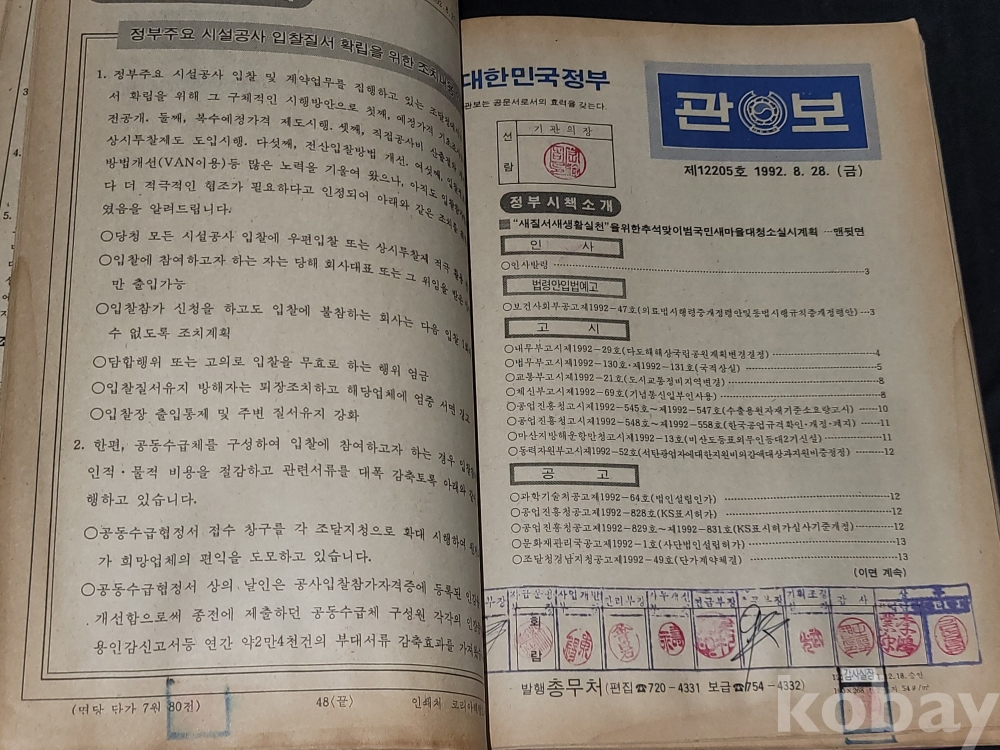 정부주요 시설공사 입찰질서 확립을 위한 조치내용
1. 정부주요 시설공사 입찰 및 계약업무를 집행하고 있는
서 확립을 위해 그 구체적인 시행방안으로 첫째, 예정가격
전공개. 둘째, 복수예정가격 제도시행. 셋째, 직접공사비 산출
상시투찰제도 도입시행. 다섯째, 전산입찰방법 개선. 여섯째,
방법개선(VAN이용)등 많은 노력을 기울여 왔으나, 아직도
다 더 적극적인 협조가 필요하다고 인정되어 아래와 같은 조치를
였음을 알려드립니다.
○당청 모든 시설공사 입찰에 우편입찰 또는 상시투찰제 적극
○입찰에 참여하고자 하는 자는 당해 회사대표 또는 그 위임을 받은
만 출입가능
○입찰참가 신청을 하고도 입찰에 불참하는 회사는 다음 입찰
수 없도록 조치계획
○담합행위 또는 고의로 입찰을 무효로 하는 행위 엄금
○입찰질서유지 방해자는 퇴장조치하고 해당업체에 엄중 서면 경고
○입찰장 출입통제 및 주변 질서유지 강화
2. 한편, 공동수급체를 구성하여 입찰에 참여하고자 하는 경우
인적·물적 비용을 절감하고 관련서류를 대폭 감축토록 아래와 같이
행하고 있습니다.
○공동수급협정서 접수 창구를 각 조달지청으로 확대 시행하여
가 희망업체의 편익을 도모하고 있습니다.
○공동수급협정서 상의 날인은 공사입찰참가자격증에 등록된
개선함으로써 종전에 제출하던 공동수급체 구성원 각각의
용인감신고서등 연간 약2만4천건의 부대서류 감축효과를
(면당 단가 7원 80전)
48〈끝〉
인쇄처
대한민국정부
관보는 공문서로서의 효력을 갖는다.
선람
기관의장
관보
제12205호 1992. 8. 28. (금)
정부시책소개
“새질서새생활실천”을위한추석맞이범국민새마을대청소실시계획 …맨뒷면
인사
○인사발령 3
법령안입법예고
○보건사회부공고제1992-47호(의료법시행령중개정령안및동법시행규칙중개정령안) 3
고시
○내무부고시제1992-29호(다도해해상국립공원계획변경결정) 4
○법무부고시제1992-130호·제1992-131호(국적상실) 5
○교통부고시제1992-21호(도시교통정비지역변경) 8
○체신부고시제1992-69호(기념통신일부인사용) 8
○공업진흥청고시제1992-545호~제1992-547호(수출용원자재기준소요량고시) 10
○공업진흥청고시제1992-548호~제1992-558호(한국공업규격확인·개정·폐지) 11
○마산지방해운항만청고시제1992-13호(비산도등표외무인등대2기신설) 11
○동력자원부고시제1992-52호(석탄광업자에대한지원비의감액대상과지원비중정정) 12
공고
○과학기술처공고제1992-64호(법인설립인가) 12
○공업진흥청공고제1992-828호(KS표시허가) 12
○공업진흥청공고제1992-829호~제1992-831호(KS표시허가심사기준개정) 12
○문화재관리국공고제1992-1호(사단법인설립허가) 13
○조달청경남지청공고제1992-49호(단가계약체결) 13
(이면 계속)
회람
관리부장
기획조정
감사
감사실장
발행 총무처 (편집☎720-4331 보급☎754-4332)
kobay